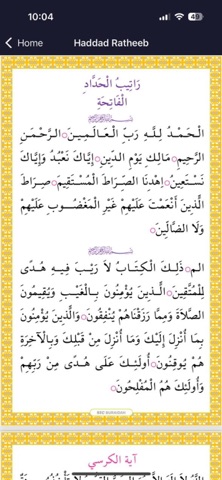 10:04
49
Home
Haddad Ratheeb
رَاتِيبُ الْحَدَّادِ
اَلْفَاتِحَةِ
اَلْحَمْدُ لِلَّهِ رَبِّ الْعَالَمِينَ الرَّحْمَنِ
الرَّحِيمِ مَالِكِ يَوْمِ الدِّينِ إِيَّاكَ نَعْبُدُ وَإِيَّاكَ
نَسْتَعِينُ اِهْدِنَا الصِّرَاطَ الْمُسْتَقِيمَ صِرَاطَ
الَّذِينَ أَنْعَمْتَ عَلَيْهِمْ غَيْرِ الْمَغْضُوبِ عَلَيْهِمْ
وَلَا الضَّالِّينَ
الم ذَلِكَ الْكِتَابُ لَا رَيْبَ فِيهِ هُدًى
لِلْمُتَّقِينَ الَّذِينَ يُؤْمِنُونَ بِالْغَيْبِ وَيُقِيمُونَ
الصَّلَاةَ وَمِمَّا رَزَقْنَاهُمْ يُنْفِقُونَ وَالَّذِينَ يُؤْمِنُونَ
بِمَا أُنْزِلَ إِلَيْكَ وَمَا أُنْزِلَ مِنْ قَبْلِكَ وَبِالْآخِرَةِ
هُمْ يُوقِنُونَ أُولَئِكَ عَلَى هُدًى مِنْ رَبِّهِمْ
وَأُولَئِكَ هُمُ الْمُفْلِحُونَ
آية الكرسي